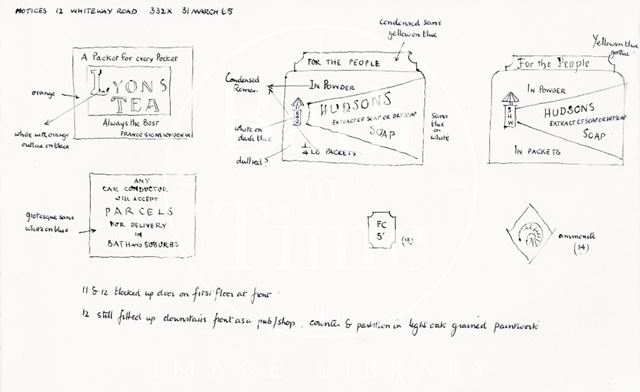 NOTICES 12 WHITEWAY ROAD 332X 31 MARCH 65
A Packet for every Pocket
LYONS
TEA
Always the Best
FRANCO SIGNS LONDON W
orange
white with orange
outline on black
condensed sans
yellow on blue
FOR THE PEOPLE
Condensed
Roman
IN POWDER
HUDSONS
EXTRACT OF SOAP OR DRY SOAP
SOAP
1/4 LB PACKETS
white on
dark blue
dull red
sans
blue
on
white
Yellow on blue
gothic
For the People
IN POWDER
HUDSONS
EXTRACT OF SOAP OR DRY SOAP
SOAP
IN PACKETS
ANY
CAR CONDUCTOR
WILL ACCEPT
PARCELS
FOR DELIVERY
IN
BATH AND SUBURBS
grotesque sans
white on blue
FC
5'
(13)
ammonite
(14)
11 & 12 blocked up door on first floor at front
12 still fitted up downstairs front as a pub/shop. counter & partition in light oak grained paintwork
In
Time
IMAGE LIBRARY